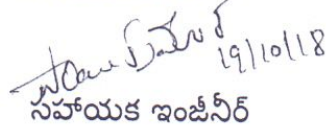 19/10/18
సహాయక ఇంజీనీర్